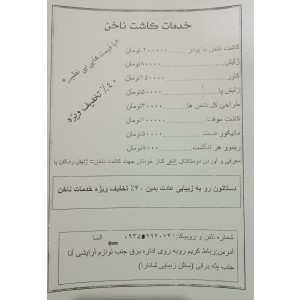 خدمات کاشت ناخن
"با قیمت هایی بی نظیر"
۴۰٪ تخفیف ویژه
کاشت ناخن با پودر............۲۰۰۰۰۰ تومان
ژلیش............۸۰۰۰۰ تومان
کاور............۱۵۰۰۰۰ تومان
ژلیش پا............۵۰۰۰۰ تومان
طراحی کل ناخن ها............۳۰۰۰۰ تومان
کاشت موقت............۱۰۰۰۰۰ تومان
مانیکور دست............۵۰۰۰۰ تومان
ریموو هر انگشت............۸۰۰۰ تومان
معرفی و آوردن دوستانتان کنار خودتان جهت کاشت ناخن= ژلیش رایگان پا
دستاتون رو به زیبایی عادت بدین ۴۰٪ تخفیف ویژه خدمات ناخن
شماره تلفن و روبیکا: السا
آدرس:رباط کریم روبه روی اداره برق جنب لوازم آرایشی آنا
جنب پله برقی (سالن زیبایی شانارا)